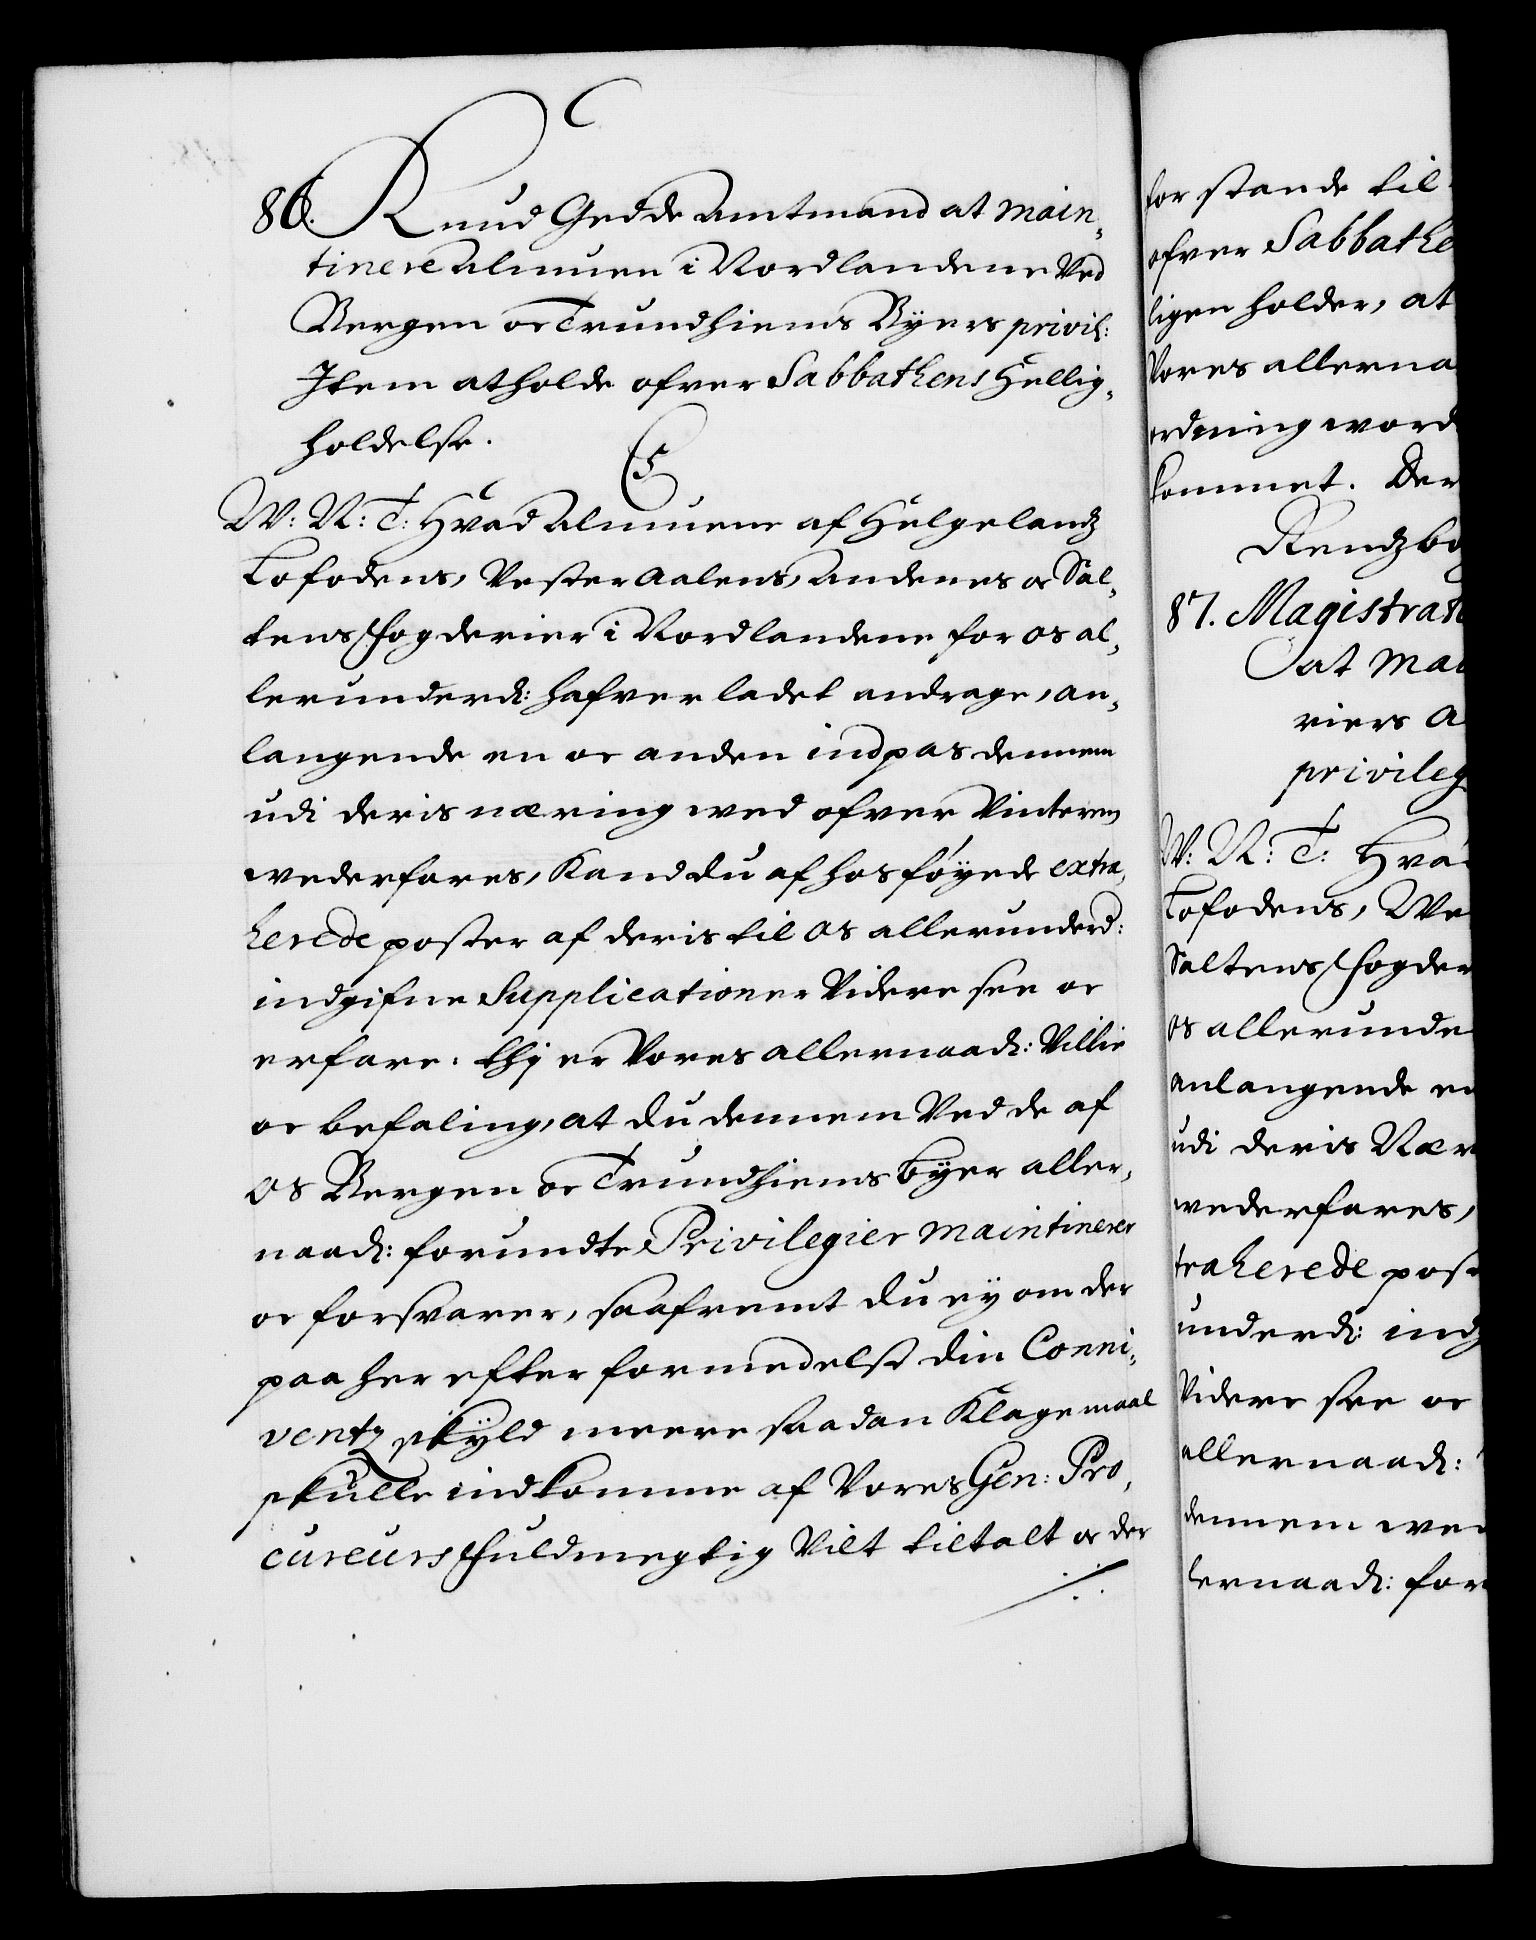 86. Knud Gedde Amtmand at main¬
tinere Almuen i Nordlandene Ved
Bergen oc Trundhiems Byers privil:
Item at holde ofver Sabbathens Hellig¬
holdelse.
C5
W: N: T: Hvad Almuene af Helgelandz
Lofodens, Vesteraalens, Andenes oc Sal¬
tens Fogderier i Nordlandene for os al¬
lerunderd: hafver ladet andrage, an¬
langende en oc anden indpas dennem
udi deris næring wed ofver Vinteren
wederfares, Kand du af hosføyede extra¬
herede poster af deris til os allerunderd:
indgifne Supplicationer Videre see oc
erfare. thj er Vores allernaad: Villie
oc befaling, at du dennem Ved de af
os Bergen oc Trundhiems byer aller¬
naad: forundte Privilegier maintinerer
oc forsvarer, saafremt du ey om der
paa her efter formedelst din Conni¬
ventz skyld meere saadan Klagemaal
skulle indkomme af Vores Gen: Pro¬
cureurs Fuldmegtig Vilt tiltalt oc der
./.
for stande til
ofver Sabbathe
ligen holder, at
Vores allerna
ordning word
kommet. Der
Rendzbo
87. Magistrat
at mai
riers A
privileg
W: N: T: Hvad
Lofodens, We
Saltens Fogder
os allerunde
anlangende en
udi deris Nær
wederfares,
traherede post
underd: indg
Videre see oc
allernaad:
dennem wed
lernaad: for